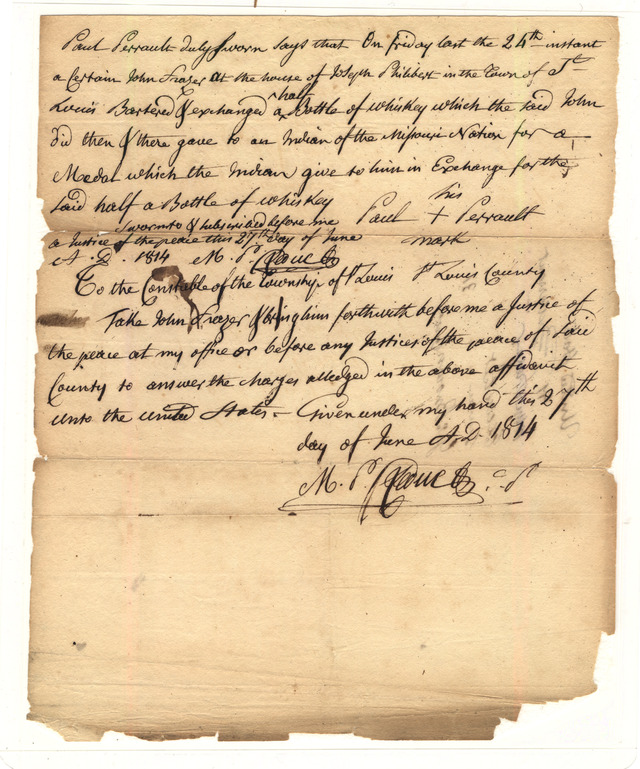 Paul Perrault duly sworn says that On friday last the 24th instant
a Certain John Frazer at the house of Joseph Philibert in the Town of St
Louis Bartered & exchanged a half Bottle of whiskey which the said John
did then & there gave to an Indian of the Missouri Nation for a
Medal which the Indian give to him in Exchange for the
said half a Bottle of whiskey
his
Paul + Perrault
mark
Sworn to & subscribed before me
a Justice of the peace this 27th day of June
A.D. 1814 M. P.
To the Constable of the Township of St Louis St Louis County
Take John Frazer & bring him forthwith before me a Justice of
the peace at my office or before any Justices of the peace of said
County to answer the charges alledged in the above affidavit
unto the united States. Given under my hand this 27th
day of June A.D. 1814
M. P.